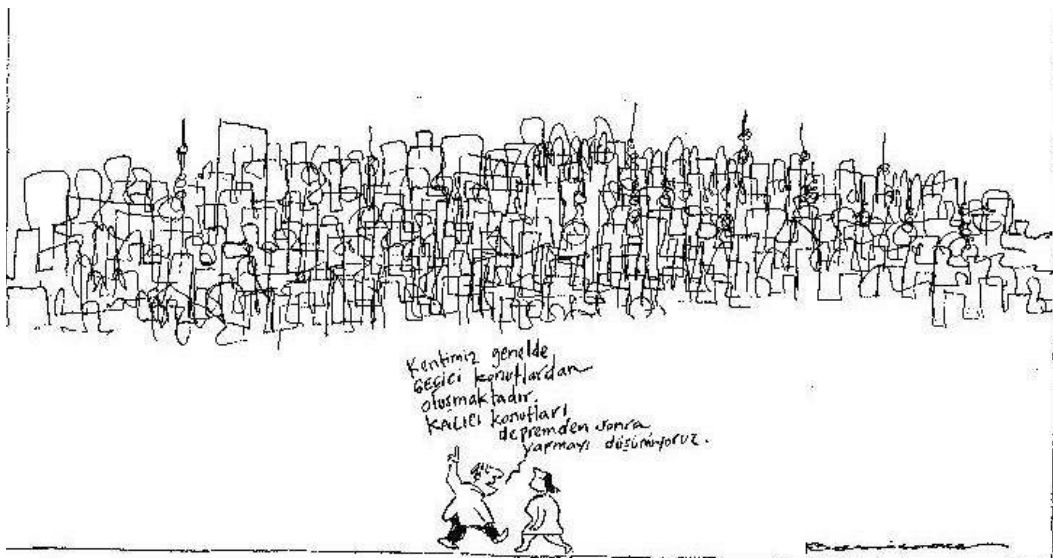 Kentimiz genelde
GEÇİCİ konutlardan
oluşmaktadır.
KALICI konutları
depremden sonra
yapmayı düşünüyoruz.